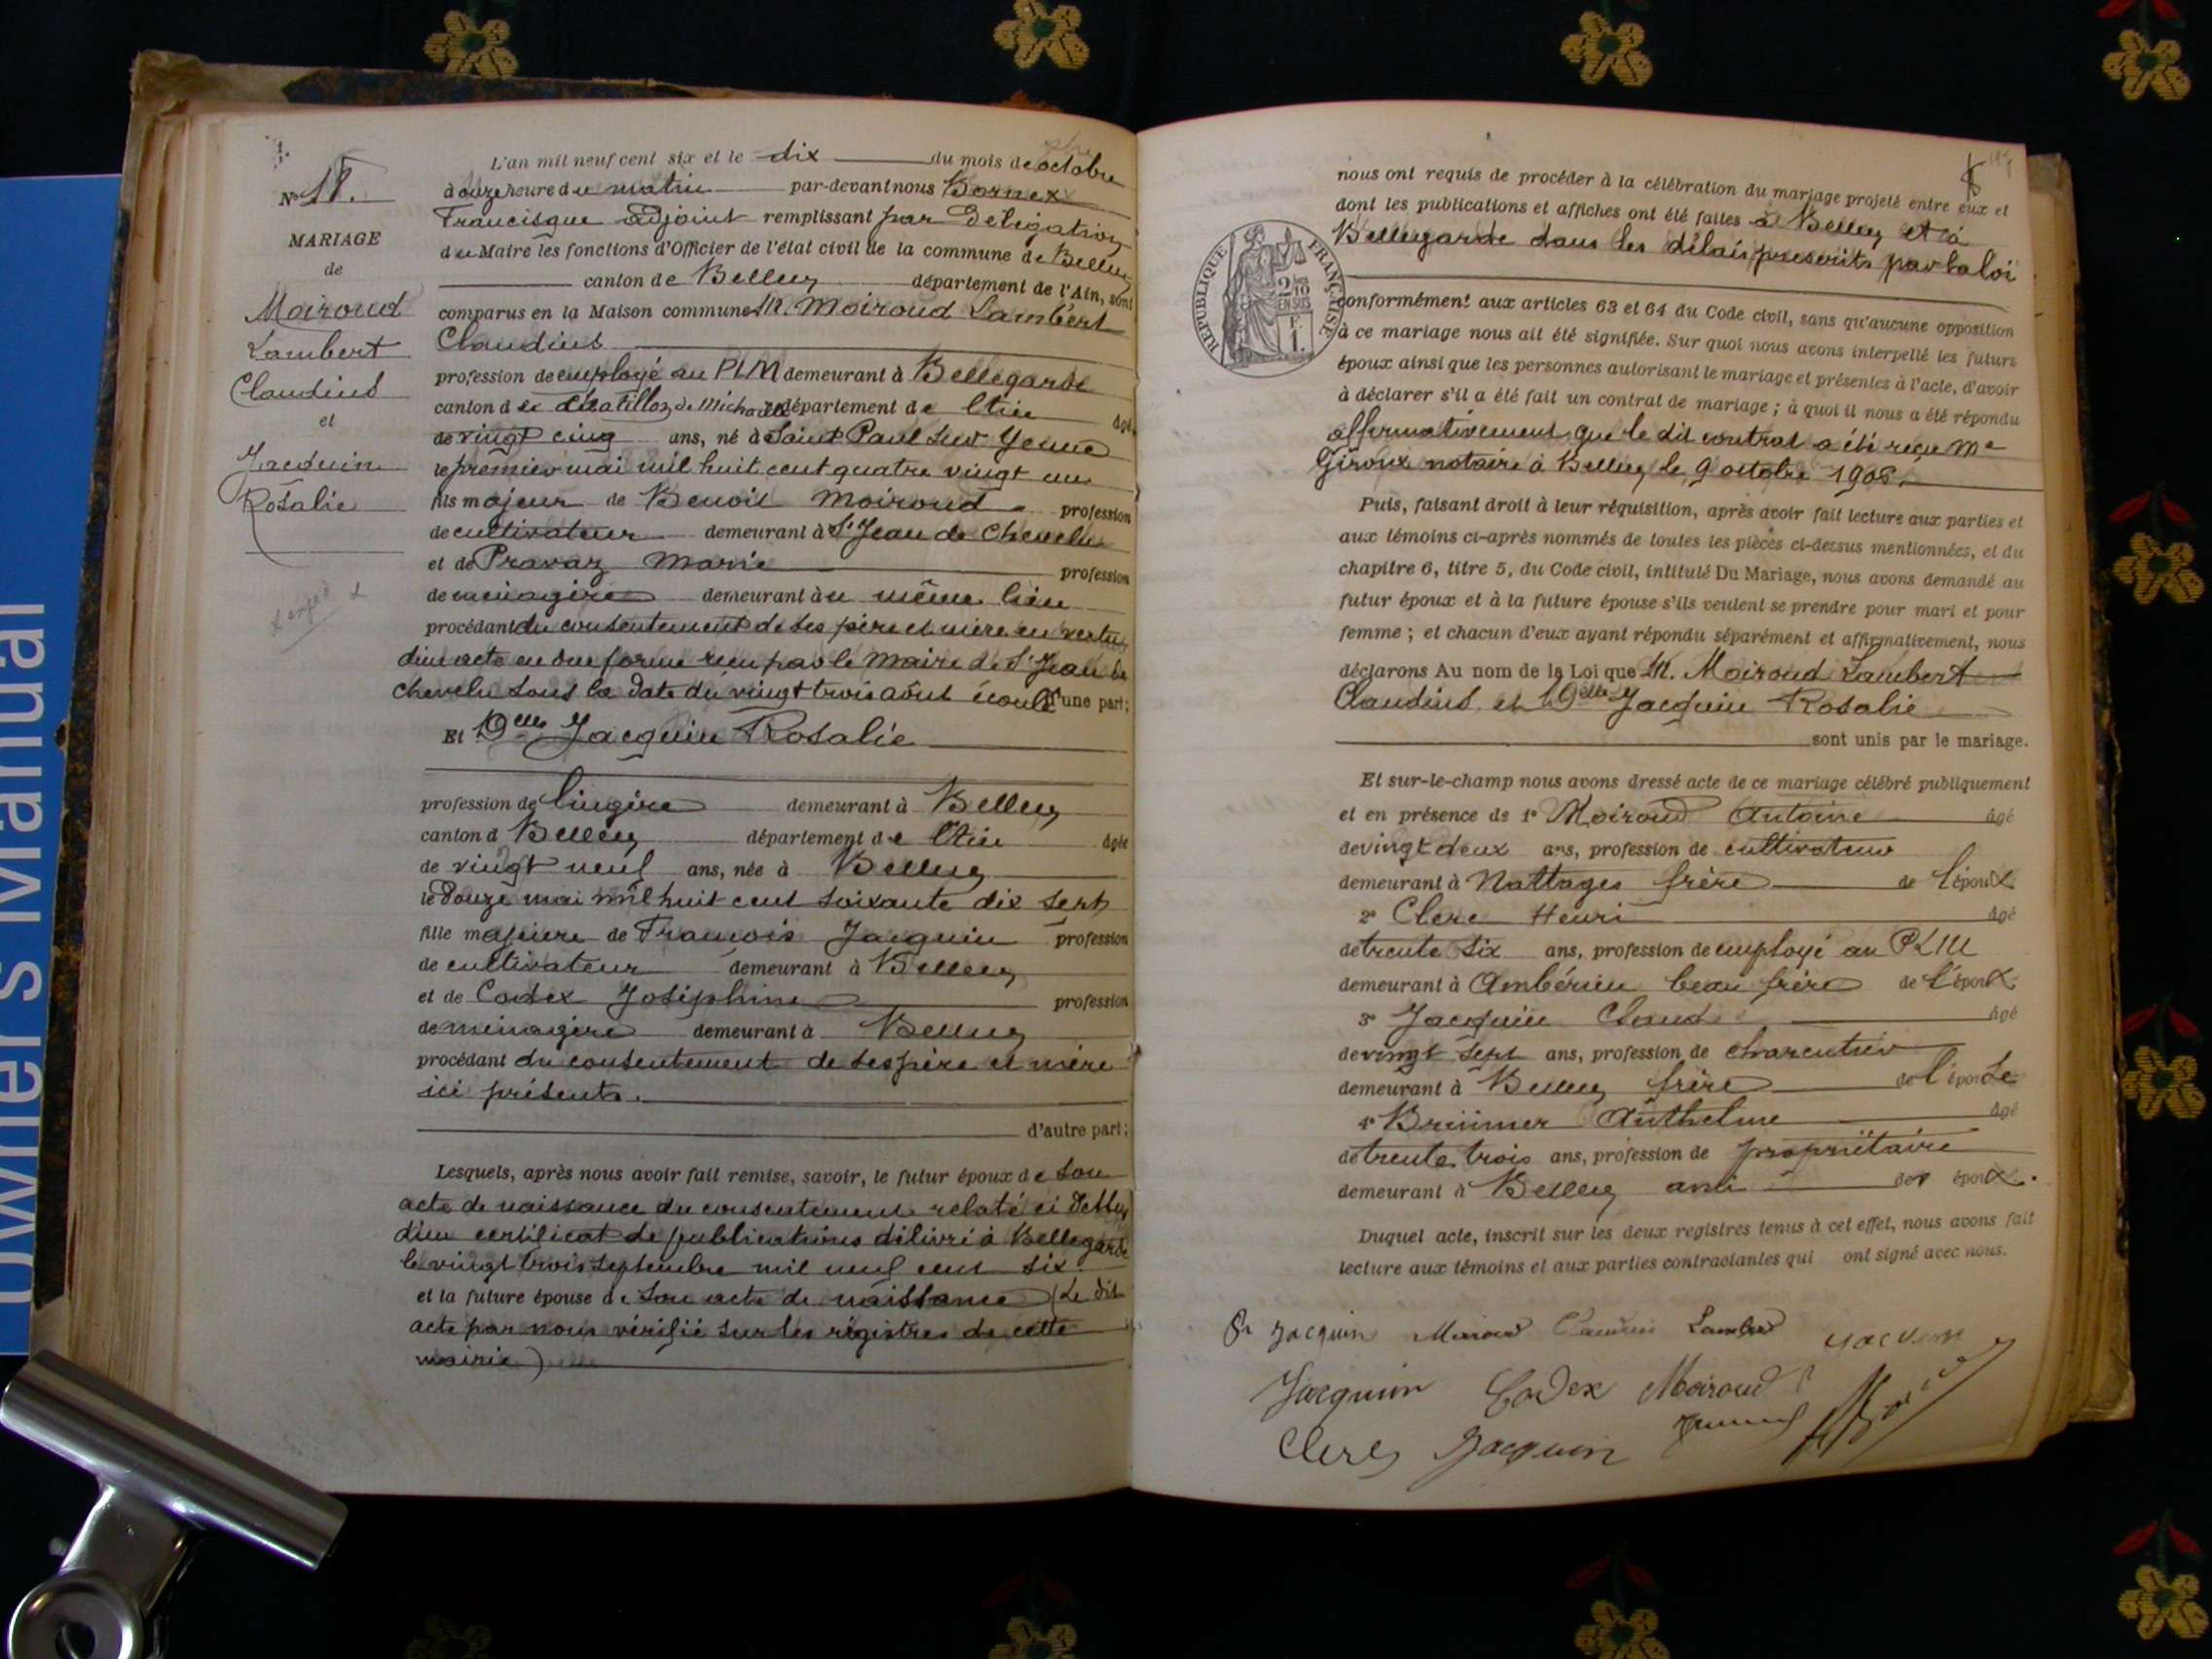 Owner's Manual
N° 18.
MARIAGE
de
Moiroud
Lambert
Claudius
et
Jacquin
Rosalie
L'an mil neuf cent six et le dix du mois de octobre
à onze heure du matin par-devant nous Bornex
Francisque adjoint remplissant par délégation
du Maire les fonctions d'Officier de l'état civil de la commune de Belley
canton de Belley département de l'Ain, sont
comparus en la Maison commune M. Moiroud Lambert
Claudius
profession de employé au PLM demeurant à Bellegarde
canton de Chatillon de Michaille département de l'Ain âgé
de vingt cinq ans, né à Saint Paul sur Yenne
le premier mai mil huit cent quatre vingt un
fils majeur de Benoit Moiroud profession
de cultivateur demeurant à St Jean de Chevelu
et de Pravaz Marie profession
de ménagère demeurant au même lieu
procédant du consentement de ses père et mère en vertu
d'un acte en due forme reçu par le Maire de St Jean de
Chevelu sous la date du vingt trois août écoulé d'une part;
Et Delle Jacquin Rosalie
profession de lingère demeurant à Belley
canton d Belley département de l'Ain âgée
de vingt neuf ans, née à Belley
le douze mai mil huit cent soixante dix sept
fille majeure de François Jacquin profession
de cultivateur demeurant à Belley
et de Codex Joséphine profession
de ménagère demeurant à Belley
procédant du consentement de ses père et mère
ici présents.
d'autre part;
Lesquels, après nous avoir fait remise, savoir, le futur époux de son
acte de naissance du consentement relaté ci dessus
d'un certificat de publications délivré à Bellegarde
le vingt trois septembre mil neuf cent six
et la future épouse de son acte de naissance (Le dit
acte par nous vérifié sur les régistres de cette
mairie)
nous ont requis de procéder à la célébration du mariage projeté entre eux et
dont les publications et affiches ont été faites à Belley et à
Bellegarde dans les délais prescrits par la loi
RÉPUBLIQUE FRANÇAISE
2/10
EN SUS
1 F.
conformément aux articles 63 et 64 du Code civil, sans qu'aucune opposition
à ce mariage nous ait été signifiée. Sur quoi nous avons interpellé les futurs
époux ainsi que les personnes autorisant le mariage et présentes à l'acte, d'avoir
à déclarer s'il a été fait un contrat de mariage ; à quoi il nous a été répondu
affirmativement que le dit contrat a été reçu Me
Giroux notaire à Belley le 9 octobre 1906.
Puis, faisant droit à leur réquisition, après avoir fait lecture aux parties et
aux témoins ci-après nommés de toutes les pièces ci-dessus mentionnées, et du
chapitre 6, titre 5, du Code civil, intitulé Du Mariage, nous avons demandé au
futur époux et à la future épouse s'ils veulent se prendre pour mari et pour
femme ; et chacun d'eux ayant répondu séparément et affirmativement, nous
déclarons Au nom de la Loi que M. Moiroud Lambert
Claudius et Delle Jacquin Rosalie
sont unis par le mariage.
Et sur-le-champ nous avons dressé acte de ce mariage célébré publiquement
et en présence de 1° Moiroud Antoine âgé
de vingt deux ans, profession de cultivateur
demeurant à Nattages frère de l'époux
2° Clerc Henri âgé
de trente six ans, profession de employé au PLM
demeurant à Ambérieu beau frère de l'époux
3° Jacquin Claude âgé
de vingt sept ans, profession de charcutier
demeurant à Belley frère de l'épouse
4° Brünner Anthelme âgé
de trente trois ans, profession de propriétaire
demeurant à Belley ami des époux.
Duquel acte, inscrit sur les deux registres tenus à cet effet, nous avons fait
lecture aux témoins et aux parties contractantes qui ont signé avec nous.
Jacquin Moiroud Claudius Lambert Jacquin
Jacquin Codex Moiroud
Clerc Jacquin